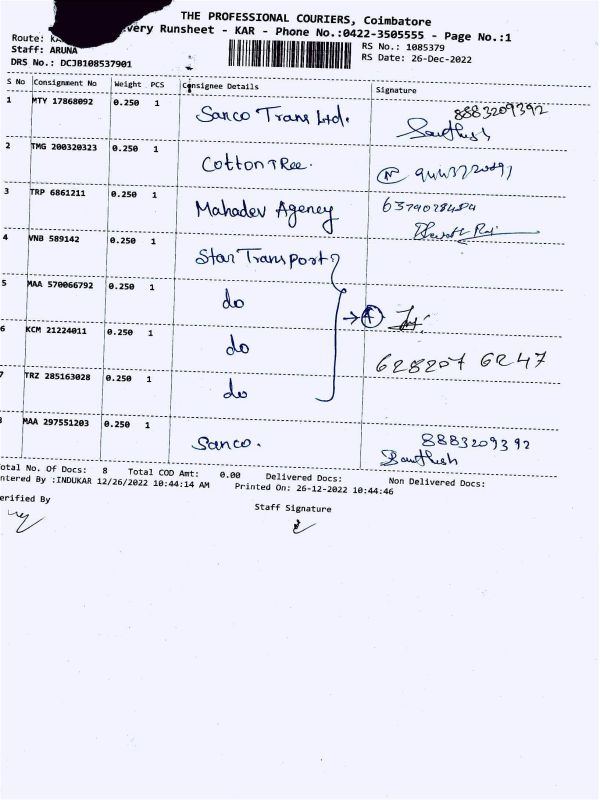 THE PROFESSIONAL COURIERS, Coimbatore
very Runsheet - KAR - Phone No.:0422-3505555 - Page No.:1
Route: KA
RS No.: 1085379
Staff: ARUNA
RS Date: 26-Dec-2022
DRS No.: DCJB108537901
S No Consignment No Weight PCS Consignee Details Signature
1 MTY 17868092 0.250 1 Sanco Trans Ltd. 8883209392
Santhosh
2 TMG 200320323 0.250 1 Cotton TRee.
3 TRP 6861211 0.250 1 Mahadev Agency
4 VNB 589142 0.250 1 Star Transport
5 MAA 570066792 0.250 1 do
6 KCM 21224011 0.250 1 do 628207 6247
7 TRZ 285163028 0.250 1 do
MAA 297551203 0.250 1 Sanco. 8883209392
Santhosh
otal No. Of Docs: 8 Total COD Amt: 0.00 Delivered Docs: Non Delivered Docs:
ntered By :INDUKAR 12/26/2022 10:44:14 AM Printed On: 26-12-2022 10:44:46
erified By Staff Signature